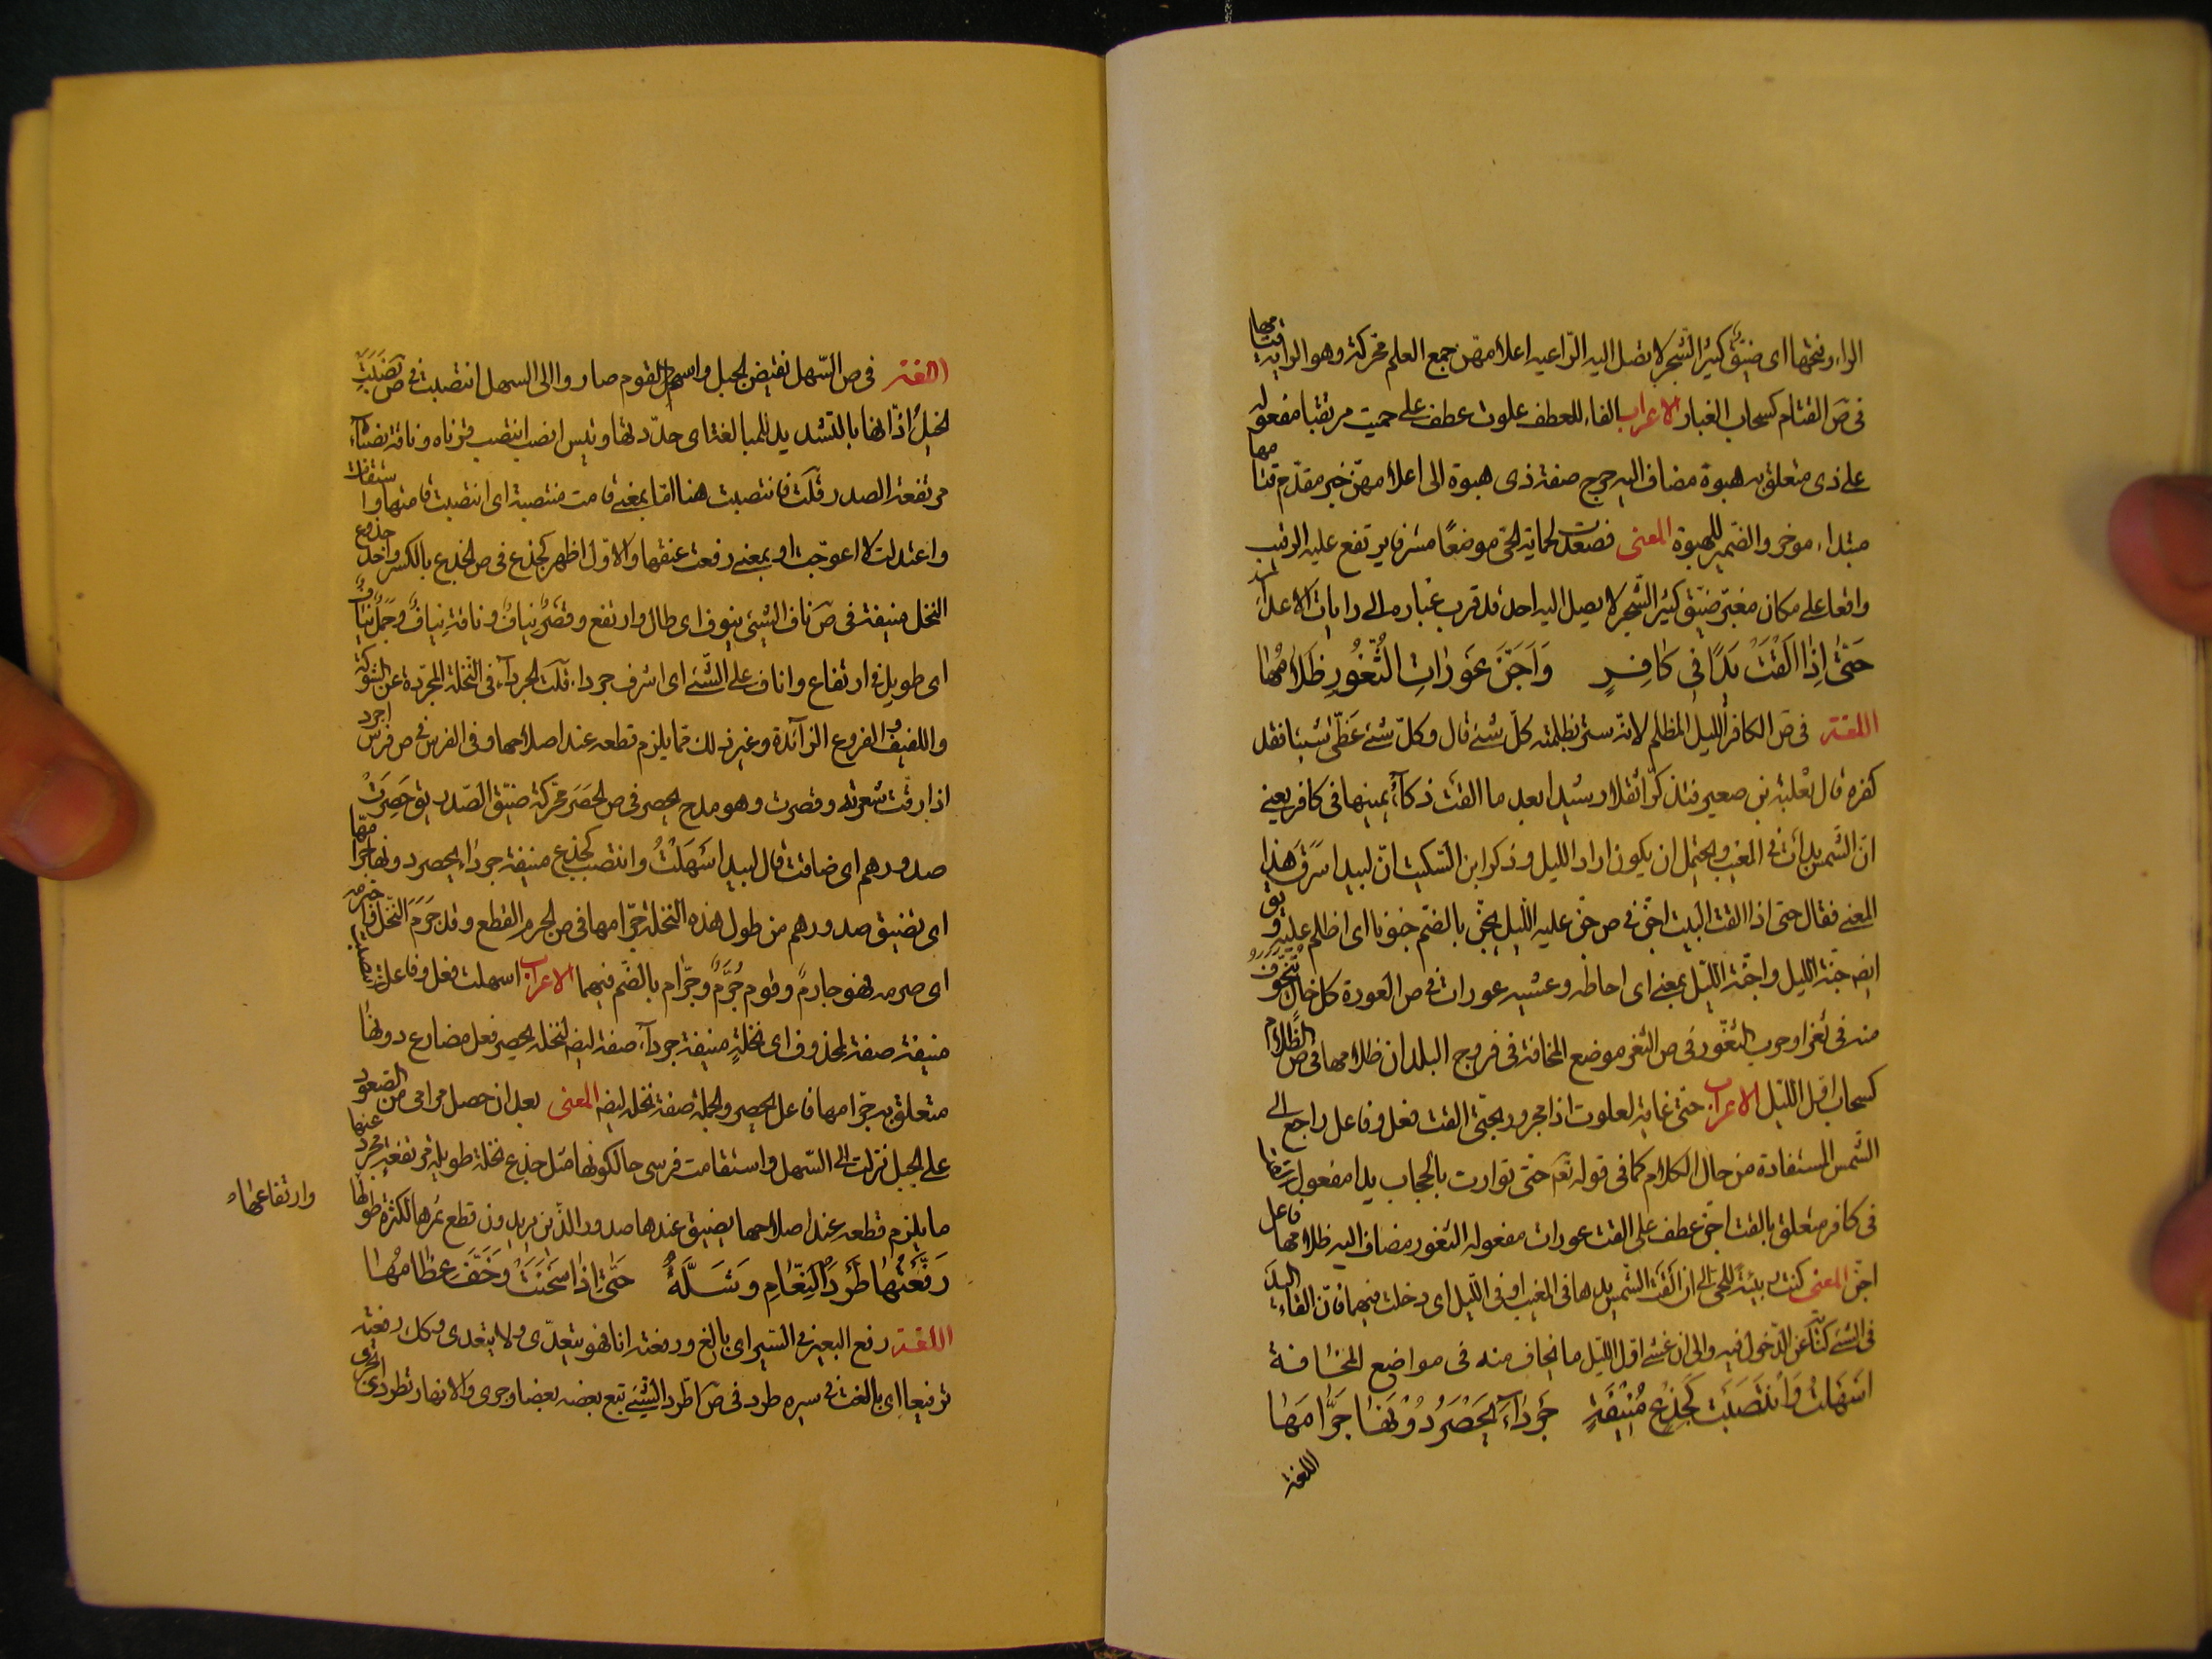 الراء وفتحها اى ضيّق كثير الشجر لا تصل اليه الرّاعيه اعلامهنّ جمع العلم محركة وهو الراية قتامها
فى صَ القتام كسحاب الغبار الاعراب الفاء للعطف علوت عطف على حميت مرتقبا مفعوله
على ذى متعلق به هبوة مضاف اليه حرج صفة ذى هبوة الى اعلامهنّ خبر مقدّم قتامها
مبتداء موخر والضمير للهبوة المعنى فصعدت لحماية الحىّ موضعًا مشرفا يرتفع عليه الرقيب
واقعا على مكان مغبّر ضيّق كثير الشّجر لا يصل اليه احد قد قرب غباره الى رايات الاعداء
حَتّىٰ اِذٰا اَلْقَتْ يَدًا فِى كٰافِرٍ وَاَجَنَّ عَوْرٰاتِ الثُّغُورِ ظَلٰامُهٰا
اللغة فى صَ الكافر الليل المظلم لانّه ستر بظلمته كلّ شئ قال وكلّ شئ غطّى شيئا فقد
كفره قال ثعلبة بن صعير فتذكّرا ثقلا رشيدا بعد ما القت ذكاء يمينها فى كافر يعنى
انّ الشّمس بدأت فى المغيب ويحتمل ان يكون اراد الليل وذكر ابن السّكيت انّ لبيدا سَرَقَ هذا
المعنى فقال حتى اذا القت البيت اجنّ فى ص جنّ عليه اللّيل يجنّ بالضّم جنونا اى اظلم عليه ويق
ايضه جنّه الليل واجنّه اللّيل بمعنى اى احاطه وغشيه عورات فى ص العورة كل خلل يُتَخَوَّفُ
منه فى ثغر او حرب الثّغور فى ص الثغر موضع المخافة فى فروج البلدان ظلامها فى ص الظلام
كسحاب اوّل اللّيل الاعراب حتى غاية لعلوت اذا مجرور بحتّى القت فعل وفاعل راجع الى
الشّمس المستفادة من حال الكلام كما فى قوله تعَ حتى توارت بالحجاب يدا مفعول القت
فى كافر متعلق بالقت اجنّ عطف على القت عورات مفعوله الثغور مضاف اليه ظلامها فاعل
اجنّ المعنى كنت ربيئةً للحىّ الى ان اَلْقَت الشّمس يدها فى المغيب او فى اللّيل اى دخلت فيهما فانّ القاء اليد
فى الشئ كناية عن الدّخول فيه والى ان غشى اوّل اللّيل ما يخاف منه فى مواضع المخافة
اَسْهَلْتُ وَانْتَصَبَتْ كَجِذْعِ مُنيفَةٍ جَرْدٰاءَ يَحْصَرُ دُوْنَهٰا جَرّٰامُهٰا
اللغة
اللغة فى ص السّهل نقيض الجبل واسهل القوم صاروا الى السهل انتصبت فى ص نَصَبَتِ
الخيلُ اذانها بالتشديد للمبالغة اى حدّدتها وتيس انصب انتصب قرناه وناقة نصباء
مرتفعة الصدر قلت فانتصبت هنا امّا بمعنى قامت منتصبة اى انتصبت قامتها واستقامت
واعتدلت لا اعوجّت او بمعنى رفعت عنقها والاوّل اظهر كجذع فى ص الجذع بالكسر واحد جذوع
النخل منيفة فى صَ ناف الشئ ينوف اى طال وارتفع وقصرٌ نيافٌ وناقة نيافٌ وجَمَلٌ نيافٌ
اى طويل فى ارتفاع واناف على الشّئ اى اشرف جرداء قلت الجرداء فى النّخلة المجرّدة عن الشوكة
واللفيف الفروع الزآئدة وغير ذلك ممّا يلزم قطعه عند اصلاحها وفى الفرس فى ص فرس اجرد
اذا رقّت شعرته وقصرت وهو مدح يحصر فى ص الحَصَر محركة ضيّق الصّدر يق حَصِرَتْ
صدورهم اى ضاقت قال لبيد اَسْهَلْتُ وانتصب كجذع منيفة جرداء يحصر دونها جرّامها
اى تضيق صدورهم من طول هذه النخلة جرّامها فى ص الجرم القطع وقد جَرَمَ النّخل
اى صرمه فهو جارمٌ وقوم جُرَّمٌ وجرّام بالضّم فيهما الاعراب اسهلت فعل وفاعل
منيفة صفة لمحذوف اى نخلةٍ منيفة جرداء صفة ايضه لنخله يحصر فعل مضارع دونها
متعلق به جرّامها فاعل يحصر والجملة صفة نخله ايضه المعنى بعد ان حصل مرامى من الصّعود
على الجبل نزلت الى السّهل واستقامت فرسى حالكونها مثل جذع نخلة طويلة مرتفعة مجرد عنها
ما يلزم قطعه عند اصلاحها يضيق عندها صدور الذّين يريدون قطع ثمرها لكثرة طولها
وارتفاعها
رَفَّعْتُهٰا طَرَدَ النَّعٰامِ وَشَلَّهُ حَتّىٰ اِذٰا سَخَنَتْ وَخَفَّ عِظٰامُهٰا
اللغة رفع البعير فى السّير اى بالغ ورفعته انا فهو يتعدّى ولا يتعدى وكك رفعته
ترفيعا اى بالغت فى سيره طرد فى صَ اطّرد الشئ تبع بعضه بعضا وجرى والانهار تطّرد اى تجرى